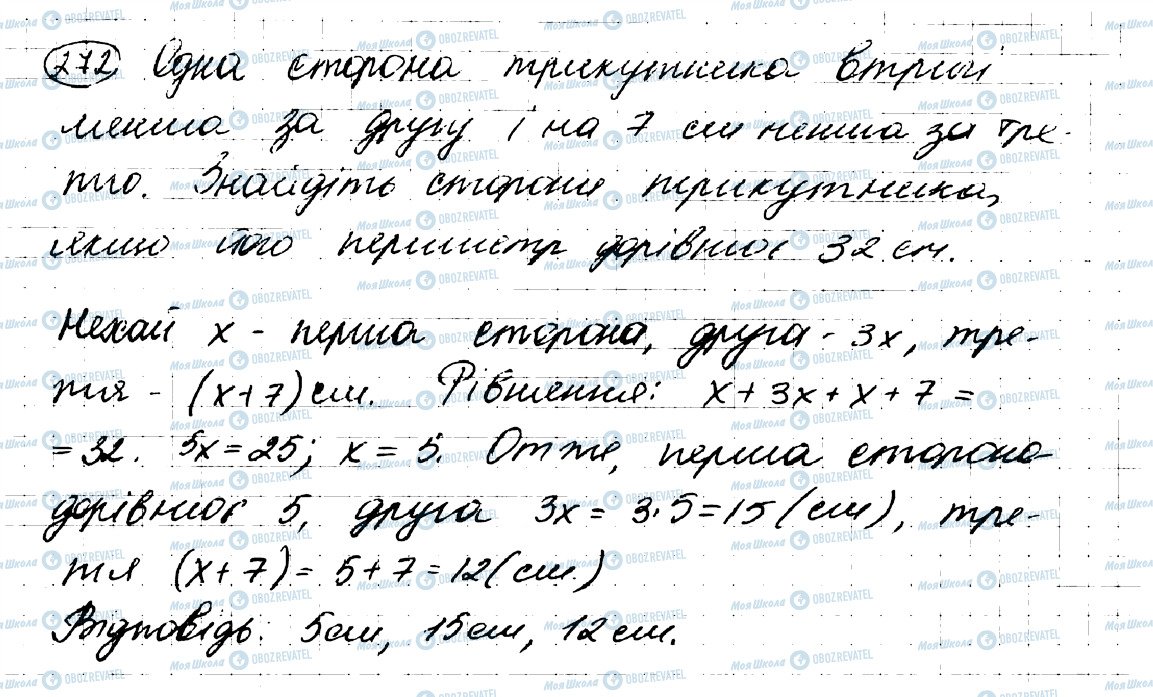 272 Одна сторона трикутника втричі
менша за другу і на 7 см менша за тре-
тю. Знайдіть сторони трикутника,
якщо його периметр дорівнює 32 см.
Нехай х - перша сторона, друга - 3х, тре-
тя - (х+7) см. Рівняння: х + 3х + х + 7 =
= 32. 5х = 25; х = 5. Отже, перша сторона
дорівнює 5, друга 3х = 3·5 = 15 (см), тре-
тя (х + 7) = 5 + 7 = 12 (см.)
Відповідь. 5см, 15см, 12см.